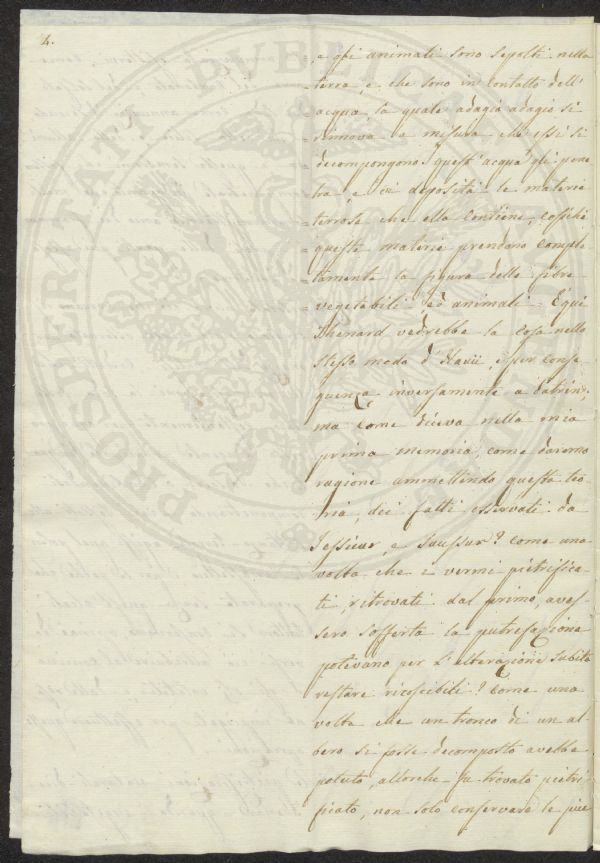 4.
e gli animali sono sepolti nella
terra e che sono in contatto dell'
acqua, la quale adagio adagio si
rinnova a misura che essi si
decompongono; quest'acqua gli pene
tra, e vi deposita le materie
terrose che ella contiene, cosichè
queste materie prendono comple
tamente la figura delle fibre
vegetabili, ed animali. E qui
Thenard vedrebbe la cosa nello
stesso modo d'Haüii, e per conse
guenza inversamente a Patrin;
ma come diceva nella mia
prima memoria, come daremo
ragione ammettendo questa teo
ria, dei fatti osservati da
Jessieur, e Saussur? Come una
volta che i vermi pietrifica
ti, ritrovati dal primo, aves
sero sofferta la putrefazione
potevano per l'alterazione subita
restare ricoscibili? Come una
volta che un tronco di un al
bero si fosse decomposto avebbe
potuto, allorche fu trovato pietri
ficato, non solo conservare le sue
PROSPERITATI PUBLICAE